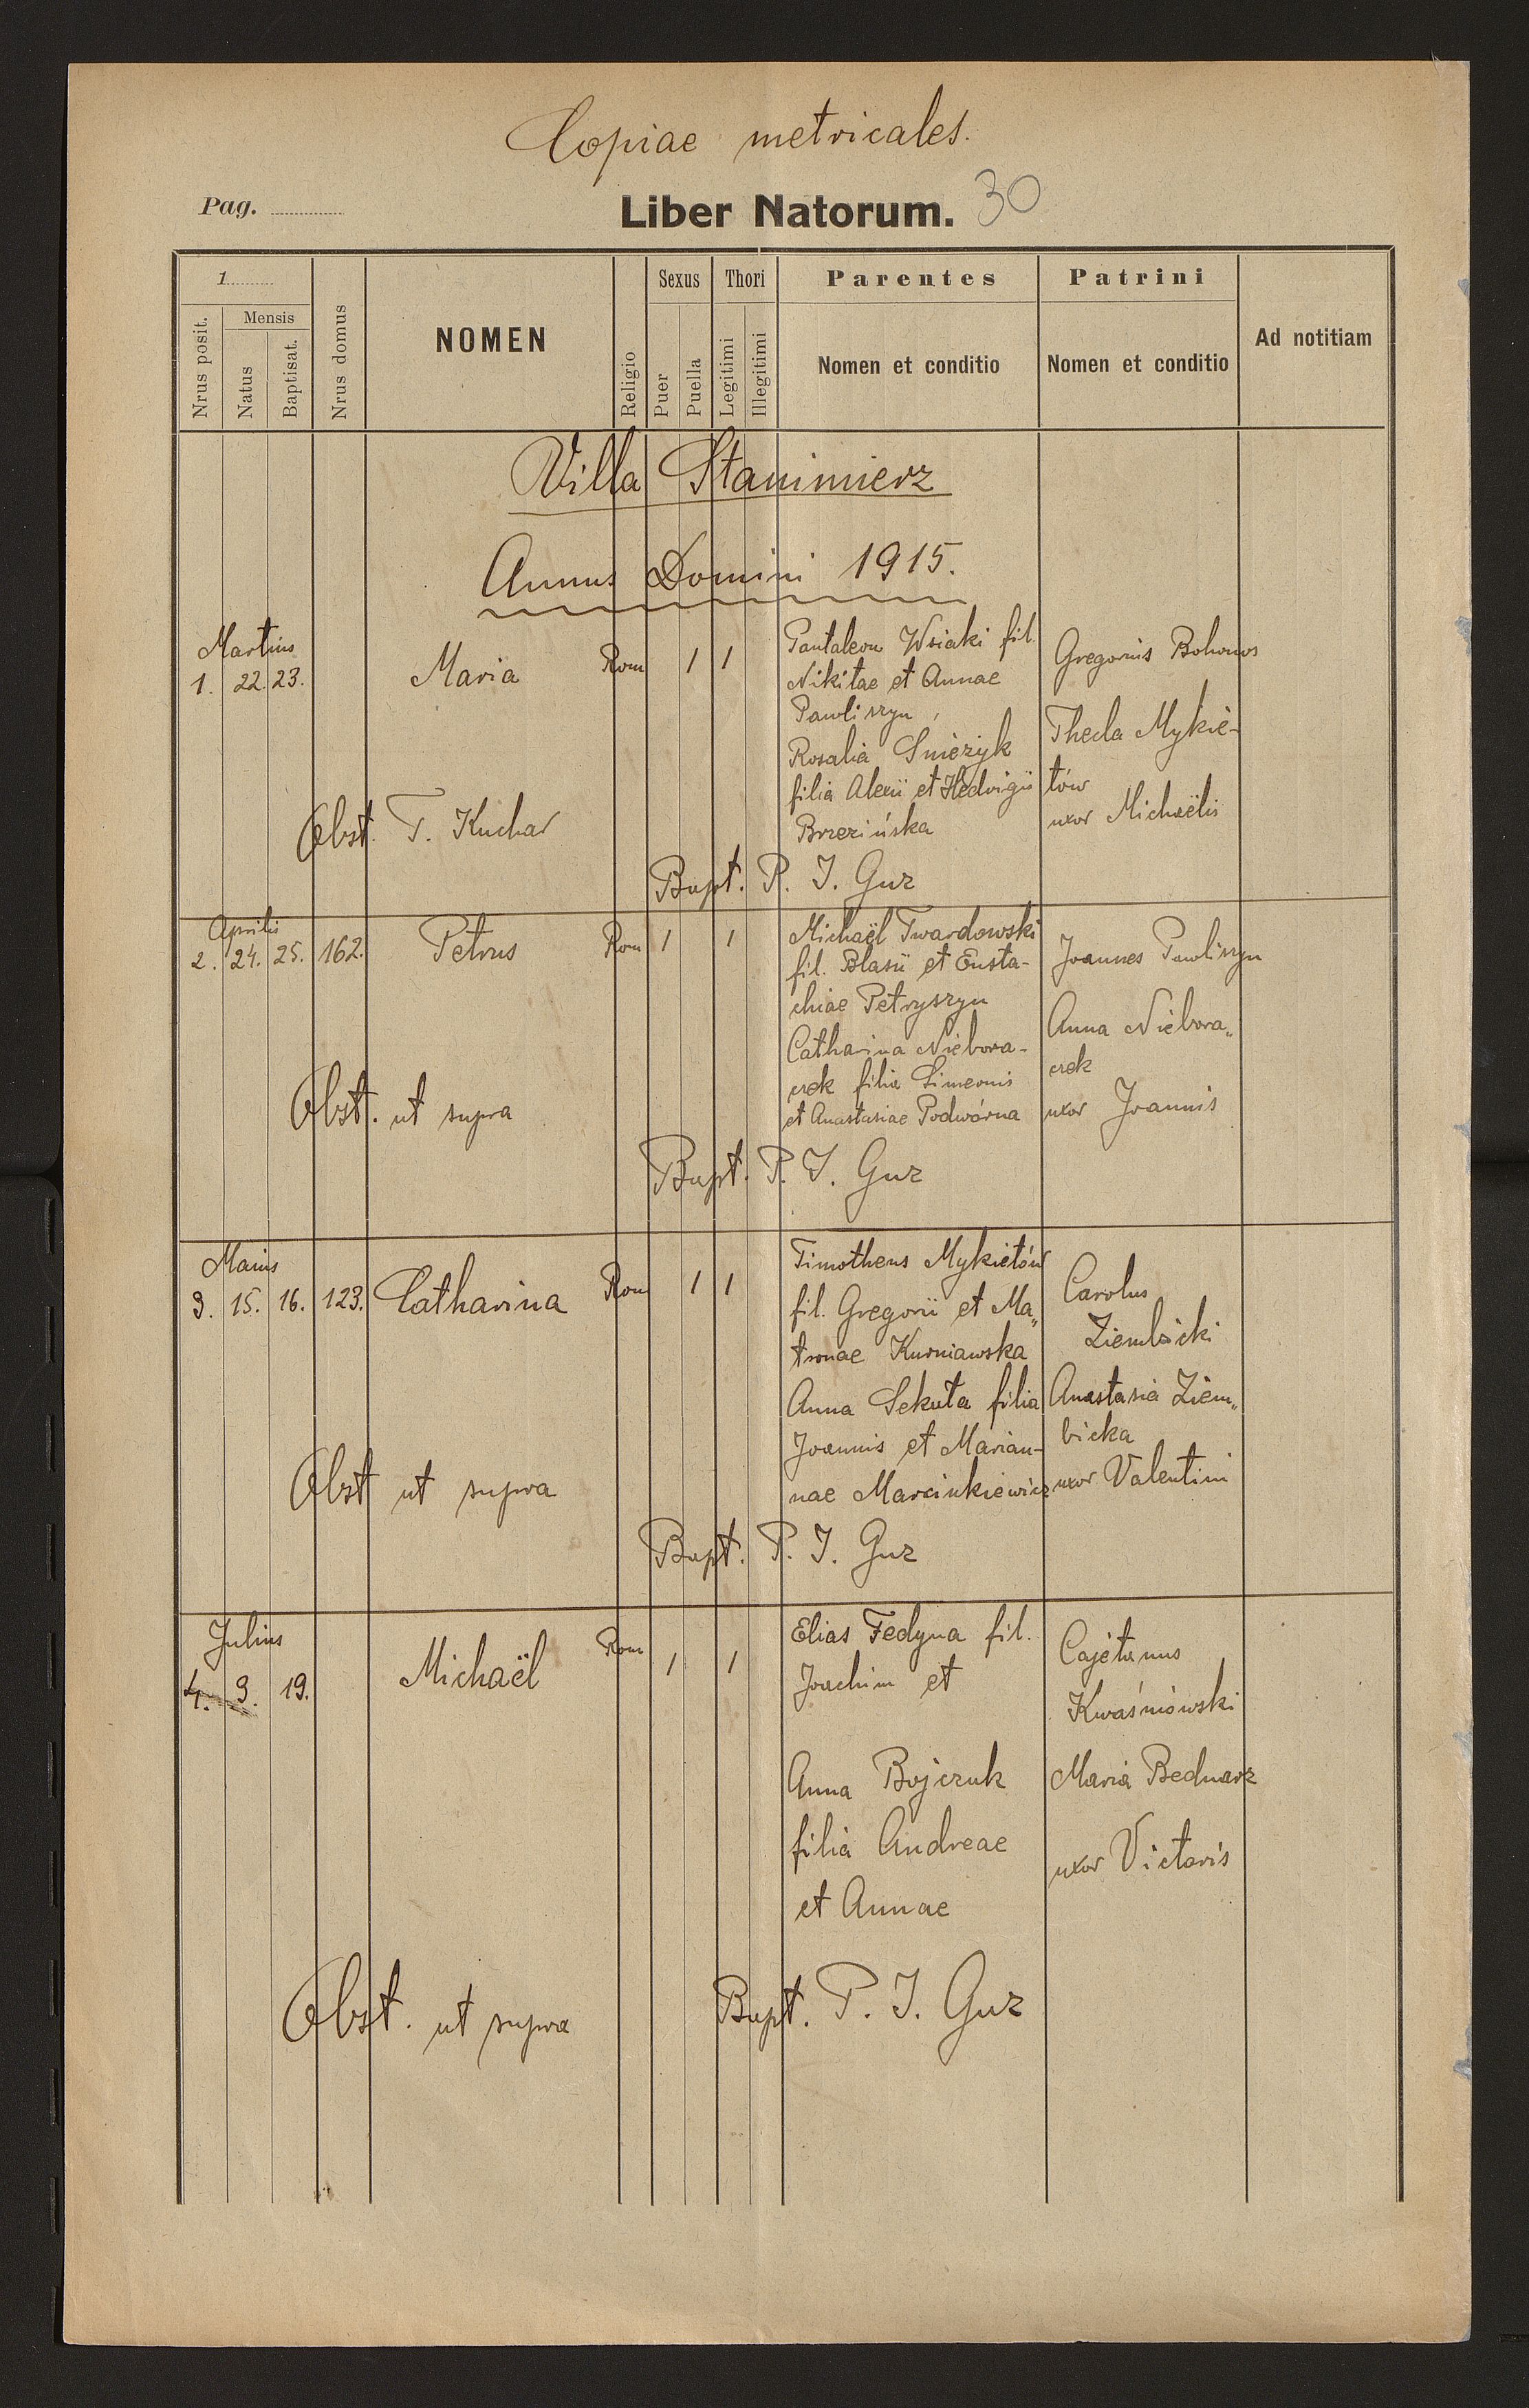 Copiae metricales.
Pag.
Liber Natorum. 30
1
Nrus posit.
Mensis
Natus
Baptisat.
Nrus domus
NOMEN
Religio
Sexus
Puer
Puella
Thori
Legitimi
Illegitimi
Parentes
Nomen et conditio
Patrini
Nomen et conditio
Ad notitiam
Villa Stanimierz
Annus Domini 1915.
Martius
1. 22. 23.
Maria
Rom
1 1
Pantaleon Wsiaki fil.
Nikitae et Annae
Pawliszyn,
Rosalia Śnieżyk
filia Alexii et Hedvigii
Brzezińska
Gregorius Bohonos
Thecla Mykie-
tów
uxor Michaëlis
Obst. T. Kuchar
Bapt. P. J. Guz
Aprilis
2. 24. 25. 162.
Petrus
Rom
1 1
Michaël Twardowski
fil. Blasii et Eusta-
chiae Petryszyn
Catharina Niebora-
czek filia Simeonis
et Anastasiae Podwórna
Joannes Pawliszyn
Anna Niebora„
czek
uxor Joannis
Obst. ut supra
Bapt. P. J. Guz
Maius
3. 15. 16. 123.
Catharina
Rom
1 1
Timotheus Mykietów
fil. Gregorii et Ma„
tronae Kurniawska
Anna Sekuta filia
Joannis et Marian-
nae Marcinkiewicz
Carolus
Ziembicki
Anastasia Ziem„
bicka
uxor Valentini
Obst ut supra
Bapt. P. J. Guz
Julius
4. 9. 19.
Michaël
Rom
1 1
Elias Fedyna fil.
Joachim et
Anna Bojczuk
filia Andreae
et Annae
Cajetanus
Kwaśniowski
Maria Bednarz
uxor Victoris
Obst. ut supra
Bapt. P. J. Guz